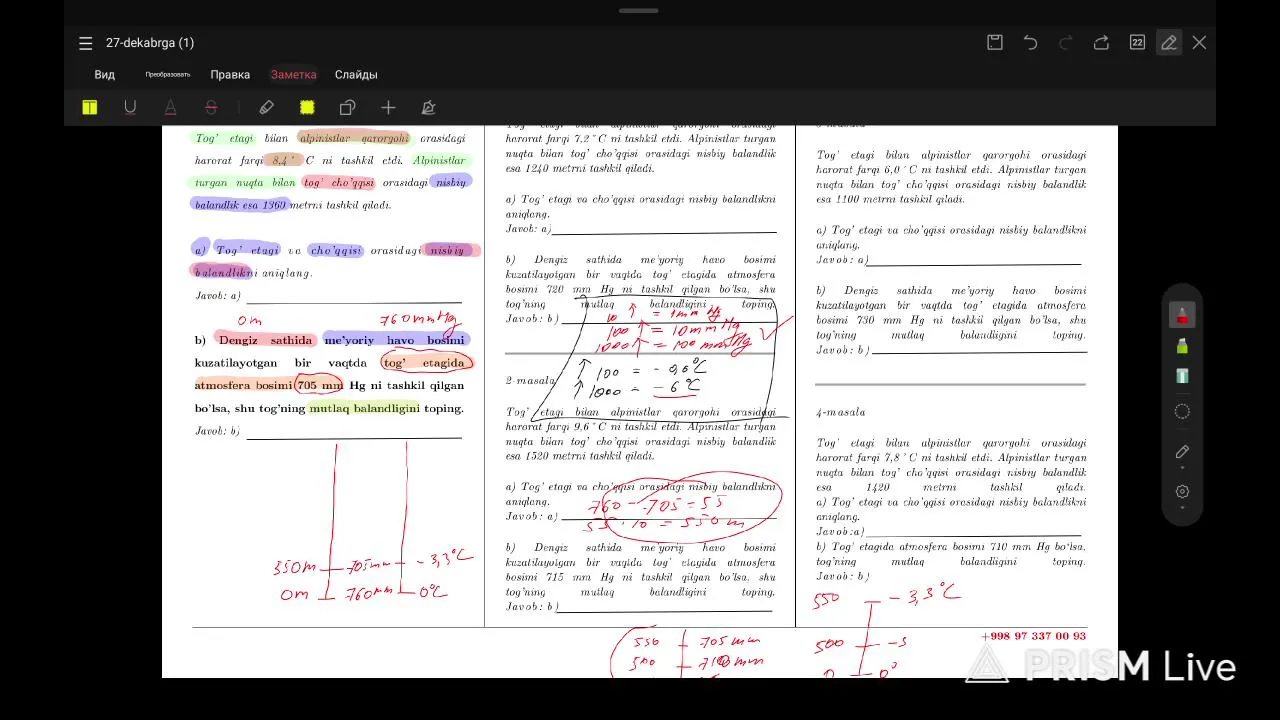 27-dekabrga (1)
22
Вид Преобразовать Правка Заметка Слайды
Tog' etagi bilan alpinistlar qarorgohi orasidagi
harorat farqi 8,4°C ni tashkil etdi. Alpinistlar
turgan nuqta bilan tog' cho'qqisi orasidagi nisbiy
balandlik esa 1360 metrni tashkil qiladi.
a) Tog' etagi va cho'qqisi orasidagi nisbiy
balandlikni aniqlang.
Javob: a)
0m 760mmHg
b) Dengiz sathida me'yoriy havo bosimi
kuzatilayotgan bir vaqtda tog' etagida
atmosfera bosimi 705 mm Hg ni tashkil qilgan
bo'lsa, shu tog'ning mutlaq balandligini toping.
Javob: b)
550m 705mm -3,3°C
0m 760mm 0°C
Tog' etagi bilan alpinistlar qarorgohi orasidagi
harorat farqi 7,2°C ni tashkil etdi. Alpinistlar turgan
nuqta bilan tog' cho'qqisi orasidagi nisbiy balandlik
esa 1240 metrni tashkil qiladi.
a) Tog' etagi va cho'qqisi orasidagi nisbiy balandlikni
aniqlang.
Javob: a)
b) Dengiz sathida me'yoriy havo bosimi
kuzatilayotgan bir vaqtda tog' etagida atmosfera
bosimi 720 mm Hg ni tashkil qilgan bo'lsa, shu
tog'ning mutlaq balandligini toping.
Javob: b)
10 ↑ = 1mm Hg
100 ↑ = 10mmHg
1000 ↑ = 100mmHg
↑ 100 = -0,6°C
↑ 1000 = -6°C
2-masala
Tog' etagi bilan alpinistlar qarorgohi orasidagi
harorat farqi 9,6°C ni tashkil etdi. Alpinistlar turgan
nuqta bilan tog' cho'qqisi orasidagi nisbiy balandlik
esa 1520 metrni tashkil qiladi.
a) Tog' etagi va cho'qqisi orasidagi nisbiy balandlikni
aniqlang.
Javob: a)
760-705=55
55·10=550m
b) Dengiz sathida me'yoriy havo bosimi
kuzatilayotgan bir vaqtda tog' etagida atmosfera
bosimi 715 mm Hg ni tashkil qilgan bo'lsa, shu
tog'ning mutlaq balandligini toping.
Javob: b)
550 705mm
500 710mm
Tog' etagi bilan alpinistlar qarorgohi orasidagi
harorat farqi 6,0°C ni tashkil etdi. Alpinistlar turgan
nuqta bilan tog' cho'qqisi orasidagi nisbiy balandlik
esa 1100 metrni tashkil qiladi.
a) Tog' etagi va cho'qqisi orasidagi nisbiy balandlikni
aniqlang.
Javob: a)
b) Dengiz sathida me'yoriy havo bosimi
kuzatilayotgan bir vaqtda tog' etagida atmosfera
bosimi 730 mm Hg ni tashkil qilgan bo'lsa, shu
tog'ning mutlaq balandligini toping.
Javob: b)
4-masala
Tog' etagi bilan alpinistlar qarorgohi orasidagi
harorat farqi 7,8°C ni tashkil etdi. Alpinistlar turgan
nuqta bilan tog' cho'qqisi orasidagi nisbiy balandlik
esa 1420 metrni tashkil qiladi.
a) Tog' etagi va cho'qqisi orasidagi nisbiy balandlikni
aniqlang.
Javob:a)
b) Tog' etagida atmosfera bosimi 710 mm Hg bo'lsa,
tog'ning mutlaq balandligini toping.
Javob: b)
550 -3,3°C
500 -3
0 0°
+998 97 337 00 93
PRISM Live